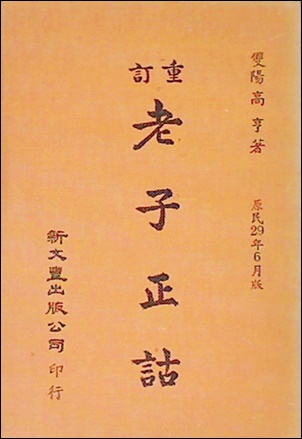 雙陽高亨著
原民29年6月版
重訂
老子正詁
新文豐出版公司印行